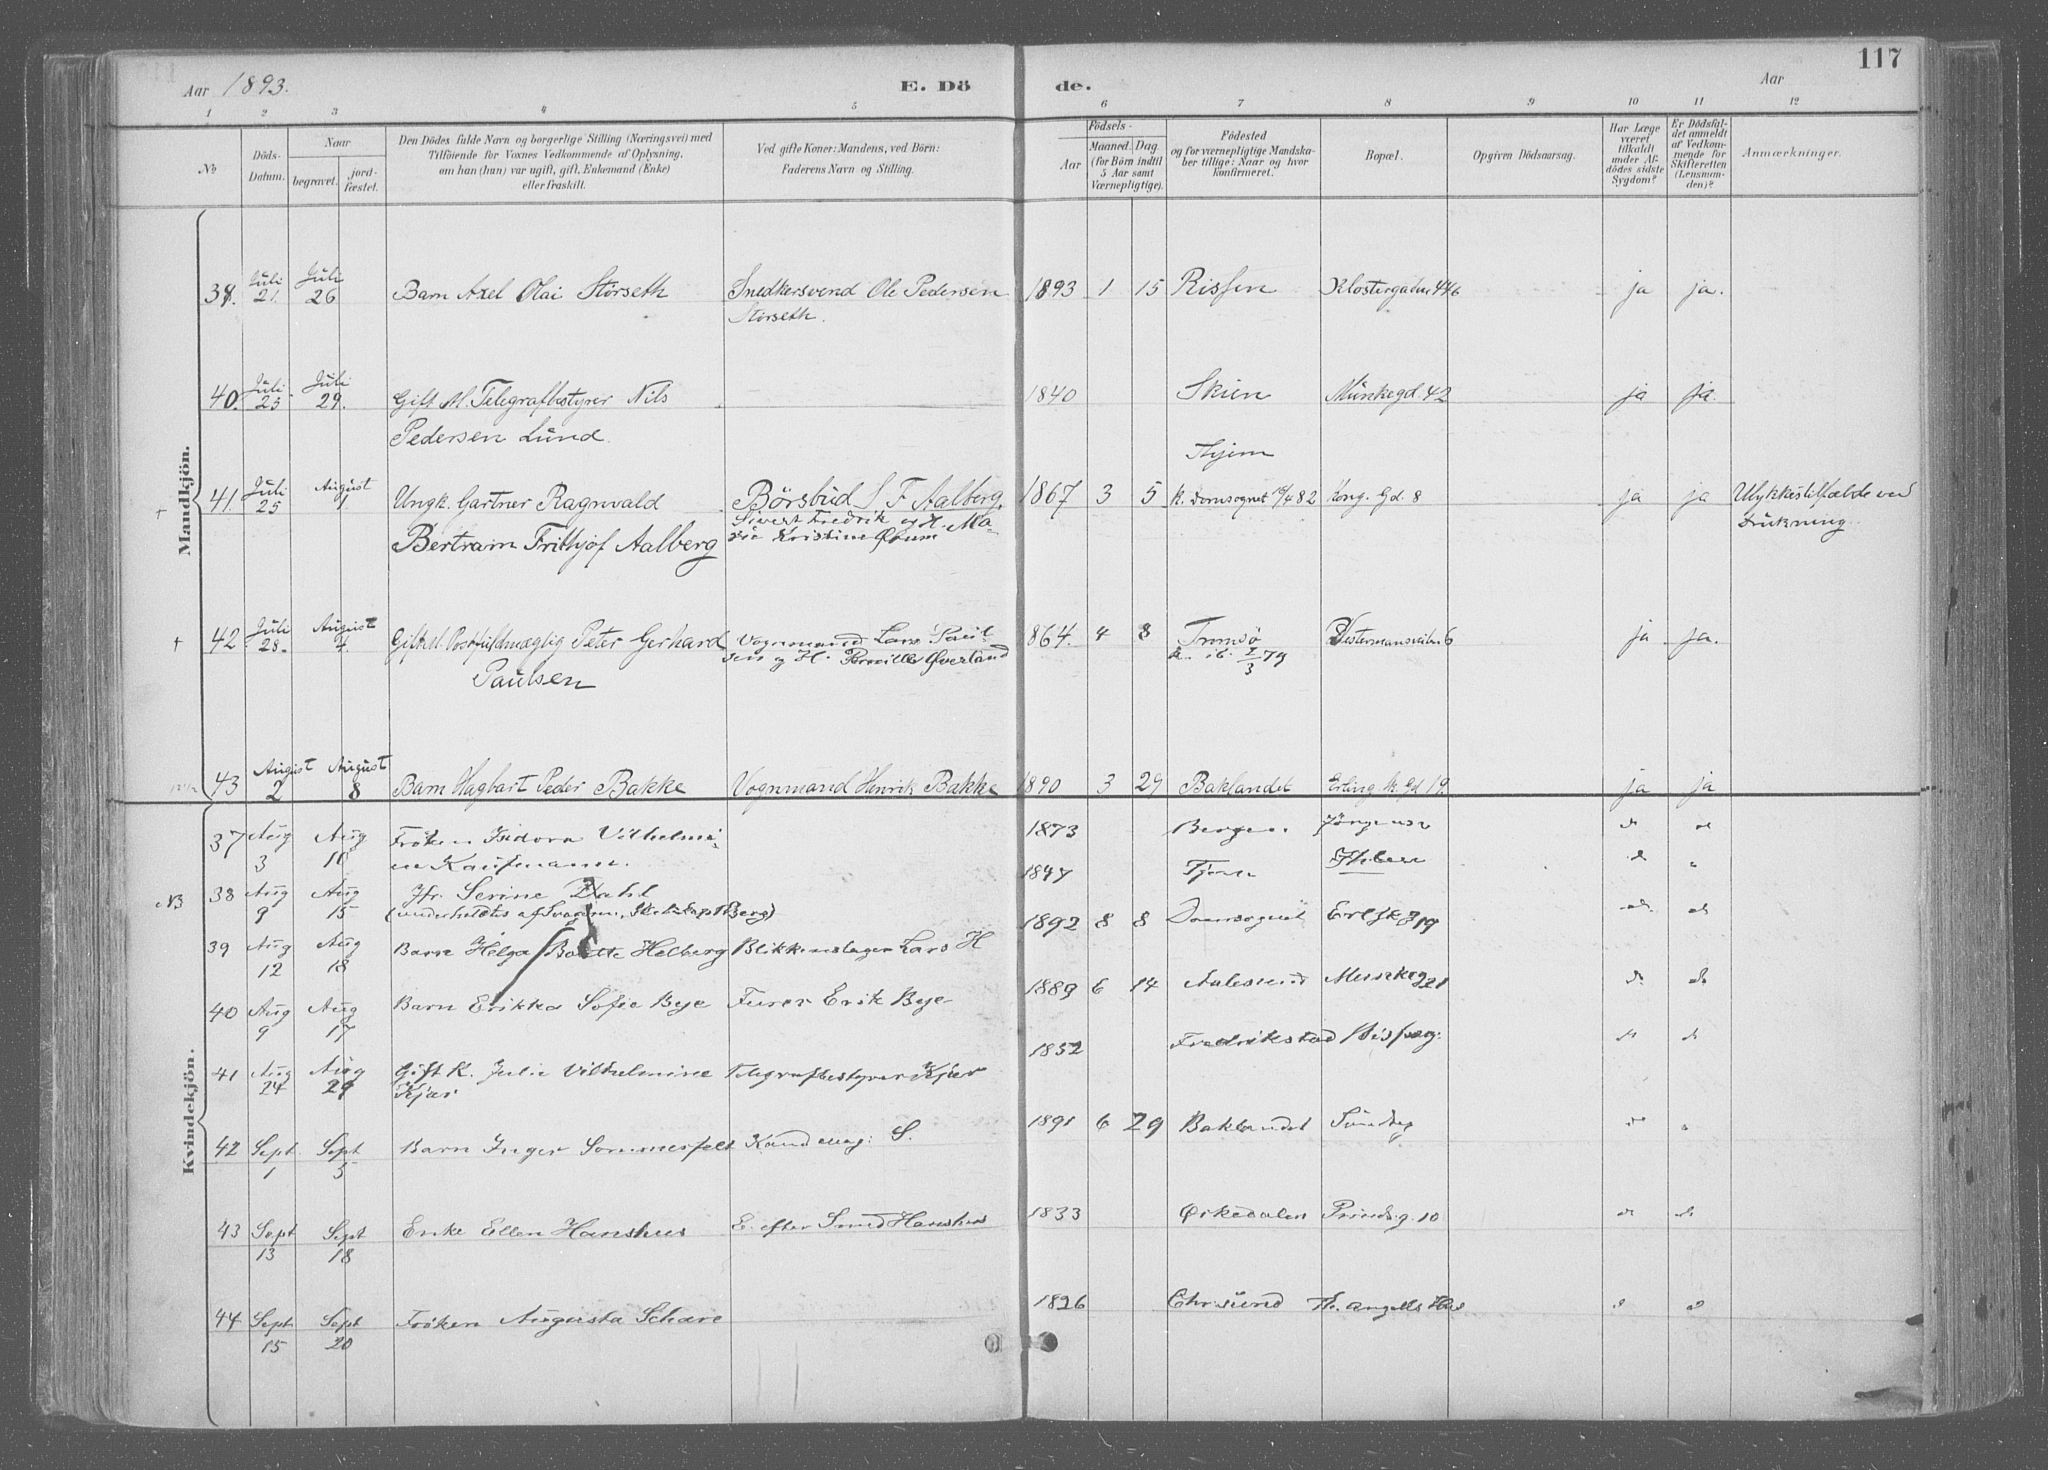 Aar 1893.
E. Dö
de.
Aar
117
1 2 3 4 5 6 7 8 9 10 11 12
No
Döds-
Datum.
Naar
begravet.
jord-
fæstet.
Den Dödes fulde Navn og borgerlige Stilling (Næringsvei) med
Tilföiende for Voxnes Vedkommende af Oplysning,
om han (hun) var ugift, gift, Enkemand (Enke)
eller fraskilt.
Ved gifte Koner: Mandens, ved Börn:
Faderens Navn og Stilling.
Födsels-
Aar
Maaned. Dag.
(for Börn indtil
5 Aar samt
Værnepligtige).
Födested
og for værnepligtige Mandska-
ber tillige: Naar og hvor
konfirmeret.
Bopæl.
Opgiven Dödsaarsag.
Har Læge
været
tilkaldt
under Af-
dödes sidste
Sygdom?
Er Dödsfal-
det anmeldt
af Vedkom-
mende for
Skifteretten
(Lensman-
den)?
Anmærkninger.
Mandkjön.
39. Juli 21. Juli 26 Barn Axel Olai Störseth Snedkersvend Ole Pedersen 1893 1 15 Rissen Klostergaden 446 ja ja.
Störseth.
40. Juli 25. Juli 29. Gift M. Telegrafbestyrer Nils 1840 Skien Munkegd. 42 ja ja.
Pedersen Lund.
Thjem
+ 41. Juli 25 August 1 Ungk. Gartner Ragnvald Börsbud S F Aalberg. 1867 3 5 k. Domsognet 82 Kong. Gd. 8 ja ja Ulykkestilfælde ved
Sivert Fredrik og H. Ma-
Bertram Frithjof Aalberg rie Kristine Öhum drukning
+ 42 Juli 28. August 4. Gift M. Peter Gerhard Vognmand Lars Paul- 1864. 4 8 Tromsö 6 ja ja.
sen og H. Pernille Överland k. ib. 2/3 79
Paulsen
43 August 2 August 8 Barn Hagbart Peder Bakke Vognmand Henrik Bakke 1890 3 29 Baklandet Erling Sk. Gd 19. ja ja
Kvindekjön.
37 Aug 3 Aug 11 Fröken Isidora Vilhelmi- 1873 Bergen d d
ne Kaufmann.
38 Aug 9 Aug 15 Jfr. Serine Dahl 1847 Ihlen d
NB (underholdtes af Svogeren, Berg)
39 Aug 12 Aug 18 Barn Helga Bolette Helberg Blikkenslager Lars H 1892 8 8 Domsognet 19 d d
40 Aug 9 Aug 17 Barn Erikka Sofie Bye Furer Erik Bye 1889 6 14 Aalesund Munkeg 21 d d
41 Aug 24 Aug 29 Gift K. Julie Vilhelmine Telegrafbestyrer Kjær 1852 Fredrikstad Bispeg. d d
Kjær
42 Sept 1 Sept 5 Barn Inger Sommerfelt Kand. mag: S. 1891 6 29 Baklandet Sundeg d
43 Sept 13 Sept 18 Enke Ellen Hanshus E. efter Smed Hanshus 1833 Örkedalen Prindsg. 10 d d
44 Sept 15 Sept 20 Fröken Augusta Schare 1826 Chr.sund Th. Angells Hus d d